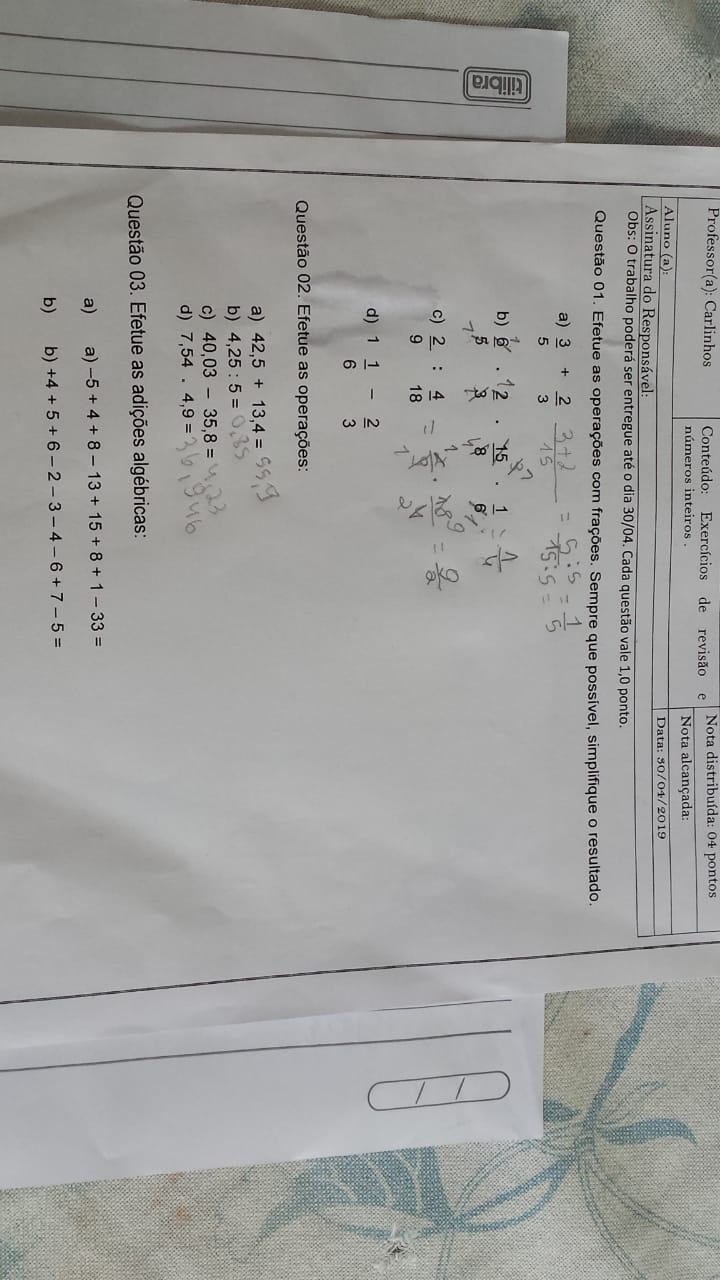 Professor(a): Carlinhos
Conteúdo: Exercícios de revisão e números inteiros .
Nota distribuída: 04 pontos
Nota alcançada:
Aluno (a):
Data: 30/04/2019
Assinatura do Responsável:
Obs: O trabalho poderá ser entregue até o dia 30/04. Cada questão vale 1,0 ponto.
Questão 01. Efetue as operações com frações. Sempre que possível, simplifique o resultado.
a) 3/5 + 2/3 3+2/15 = 5:5/15:5 = 1/5
tilibra
b) 6/5 . 12/3 . 15/8 . 1/6 = 1/4
c) 2/9 : 4/18 = 2/9 . 18/4 = 9/2
d) 1 1/6 – 2/3
Questão 02. Efetue as operações:
a) 42,5 + 13,4 = 55,9
b) 4,25 : 5 = 0,85
c) 40,03 – 35,8 = 4,23
d) 7,54 . 4,9 = 36,946
Questão 03. Efetue as adições algébricas:
a) a) –5 + 4 + 8 – 13 + 15 + 8 + 1 – 33 =
b) b) +4 + 5 + 6 – 2 – 3 – 4 – 6 + 7 – 5 =